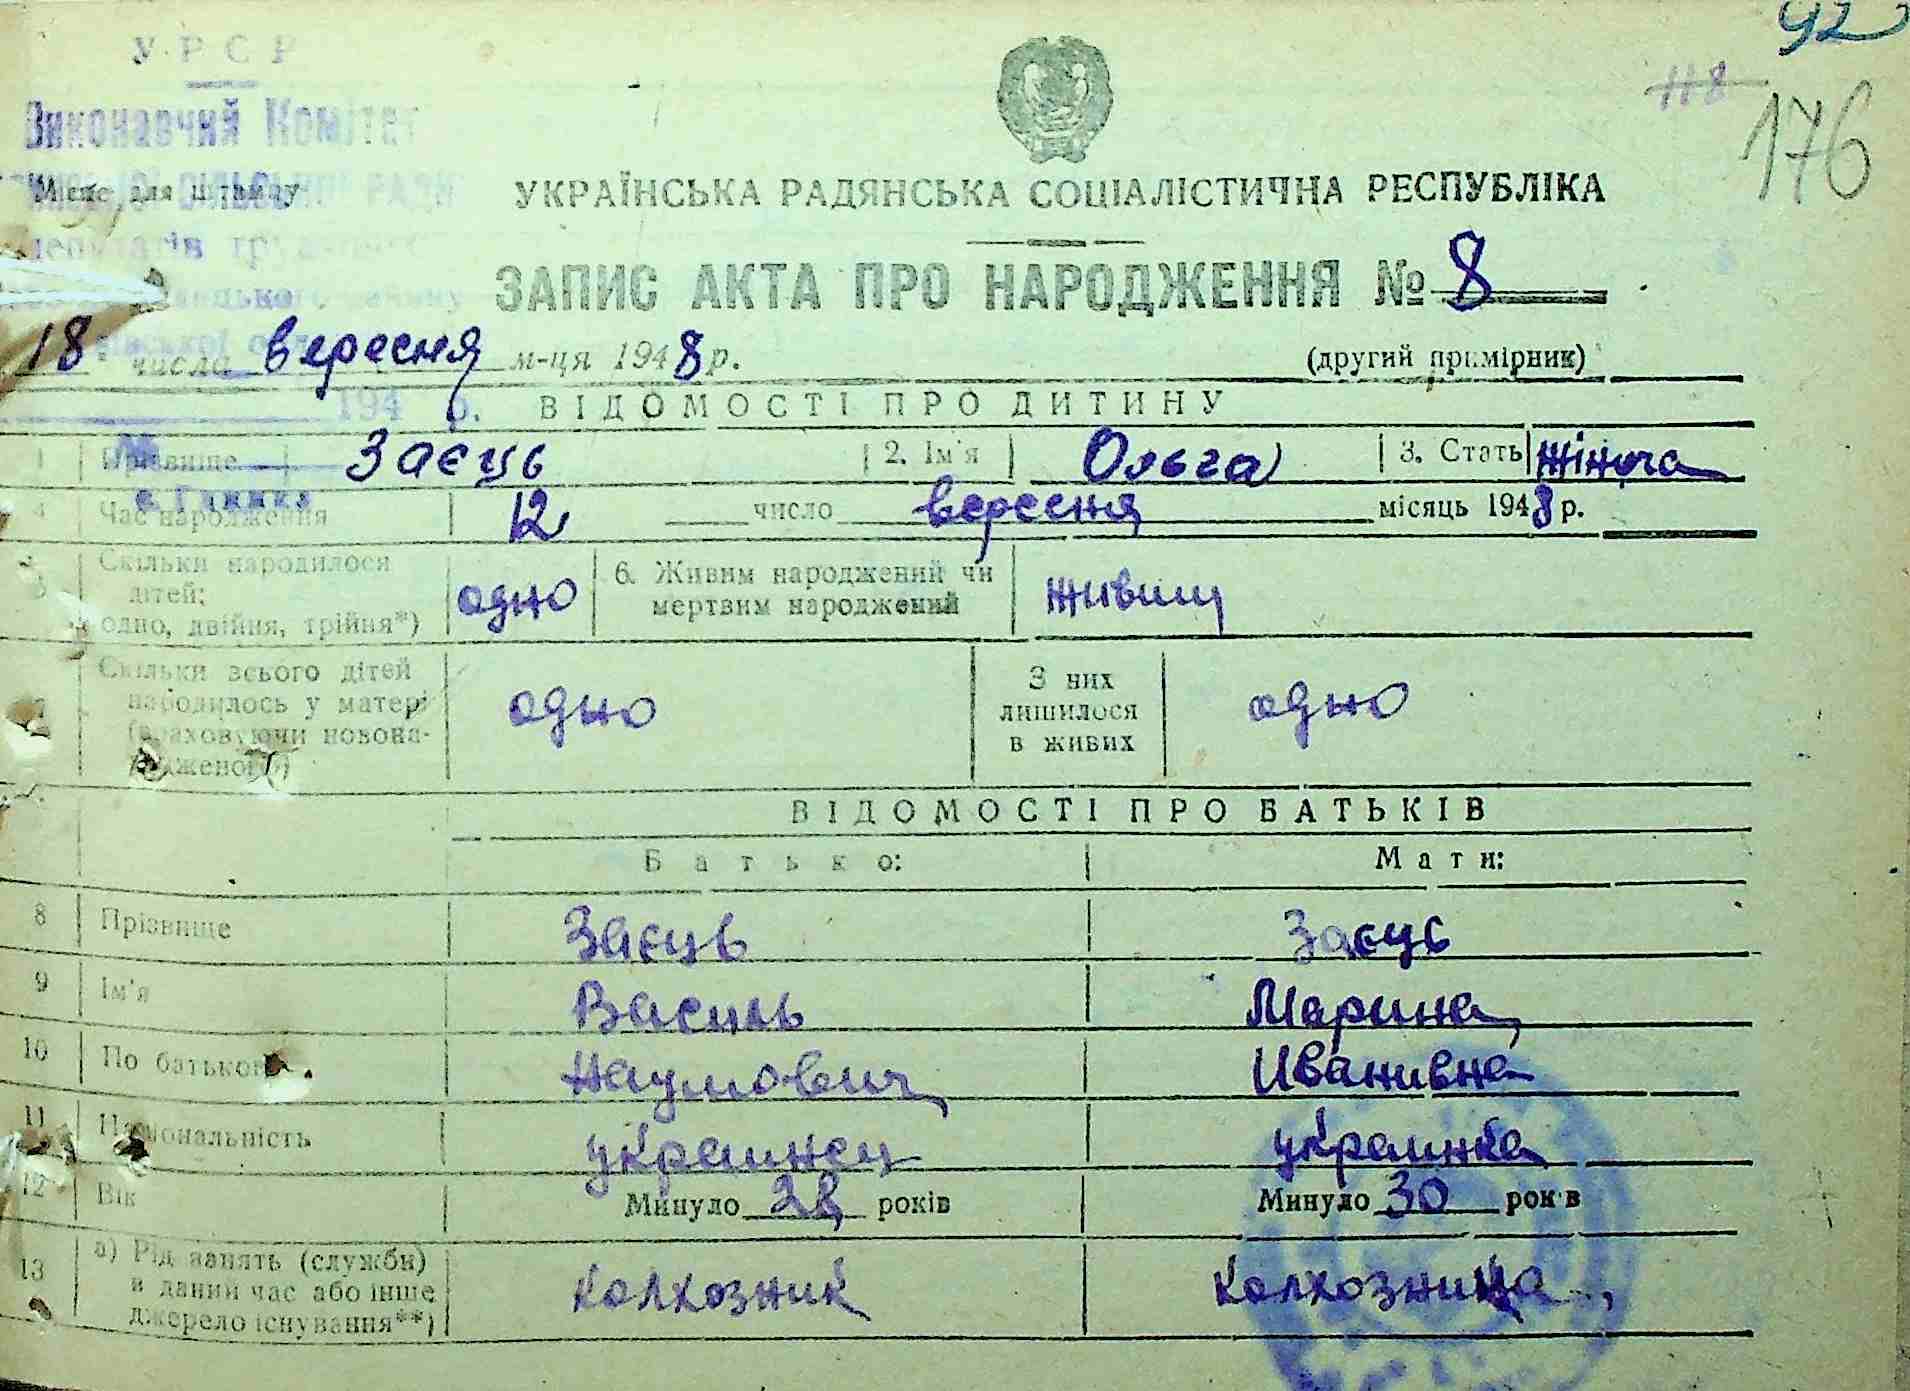 92
118
176
УРСР
Виконавчий Комітет
СІЛЬСЬКОЇ РАДИ
Місце для штампу
УКРАЇНСЬКА РАДЯНСЬКА СОЦІАЛІСТИЧНА РЕСПУБЛІКА
депутатів
ЗАПИС АКТА ПРО НАРОДЖЕННЯ № 8
18 числа вересня м-ця 1948 р.
(другий примірник)
194 р.
ВІДОМОСТІ ПРО ДИТИНУ
1 Прізвище Заєць 2. Ім'я Ольга 3. Стать жіноча
4 Час народження 12 число вересня місяць 1948 р.
5 Скільки народилося дітей: одно, двійня, трійня*) одно 6. Живим народжений чи мертвим народжений живим
7 Скільки всього дітей народилось у матері (враховуючи новонародженого) одно З них лишилося в живих одно
ВІДОМОСТІ ПРО БАТЬКІВ
Батько: Мати:
8 Прізвище Заєць Заєць
9 Ім'я Василь Марина
10 По батькові Наумович Иванивна
11 Національність украинец украинка
12 Вік Минуло 28 років Минуло 30 років
13 а) Рід занять (служби) в даний час або інше джерело існування**) колхозник колхозница